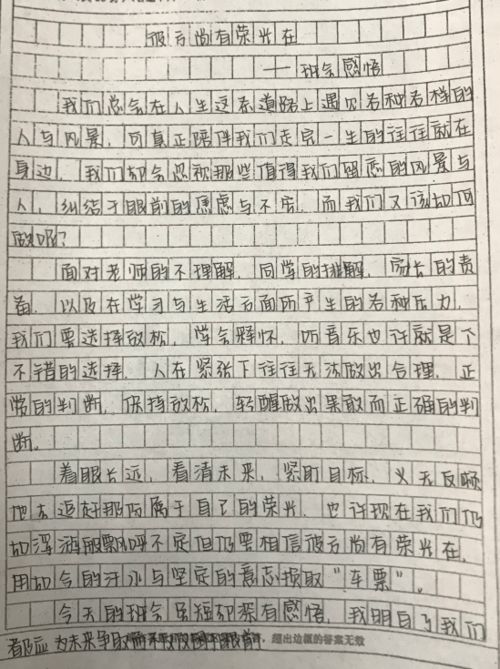 彼方尚有荣光在
——班会感悟
我们总会在人生这条道路上遇见各种各样的
人与风景，可真正陪伴我们走完一生的往往就在
身边，我们却会忽视那些值得我们留恋的风景与
人，纠结于眼前的焦虑与不安，而我们又该如何
做呢？
面对老师的不理解，同学的排解，家长的责
备，以及在学习与生活方面所产生的各种压力，
我们要选择放松，学会释怀，听音乐也许就是个
不错的选择，人在紧张下往往无法做出合理，正
常的判断，保持放松，轻醒做出果敢而正确的判
断。
着眼长远，看清未来，紧盯目标，义无反顾
地去追赶那所属于自己的荣光，也许现在我们仍
如浮萍般飘忽不定但仍要相信彼方尚有荣光在，
用如今的汗水与坚定的意志换取“车票”。
今天的班会虽短却深有感悟，我明白了我们
都应为未来争取而不仅仅囿于眼前
，超出边框的答案无效